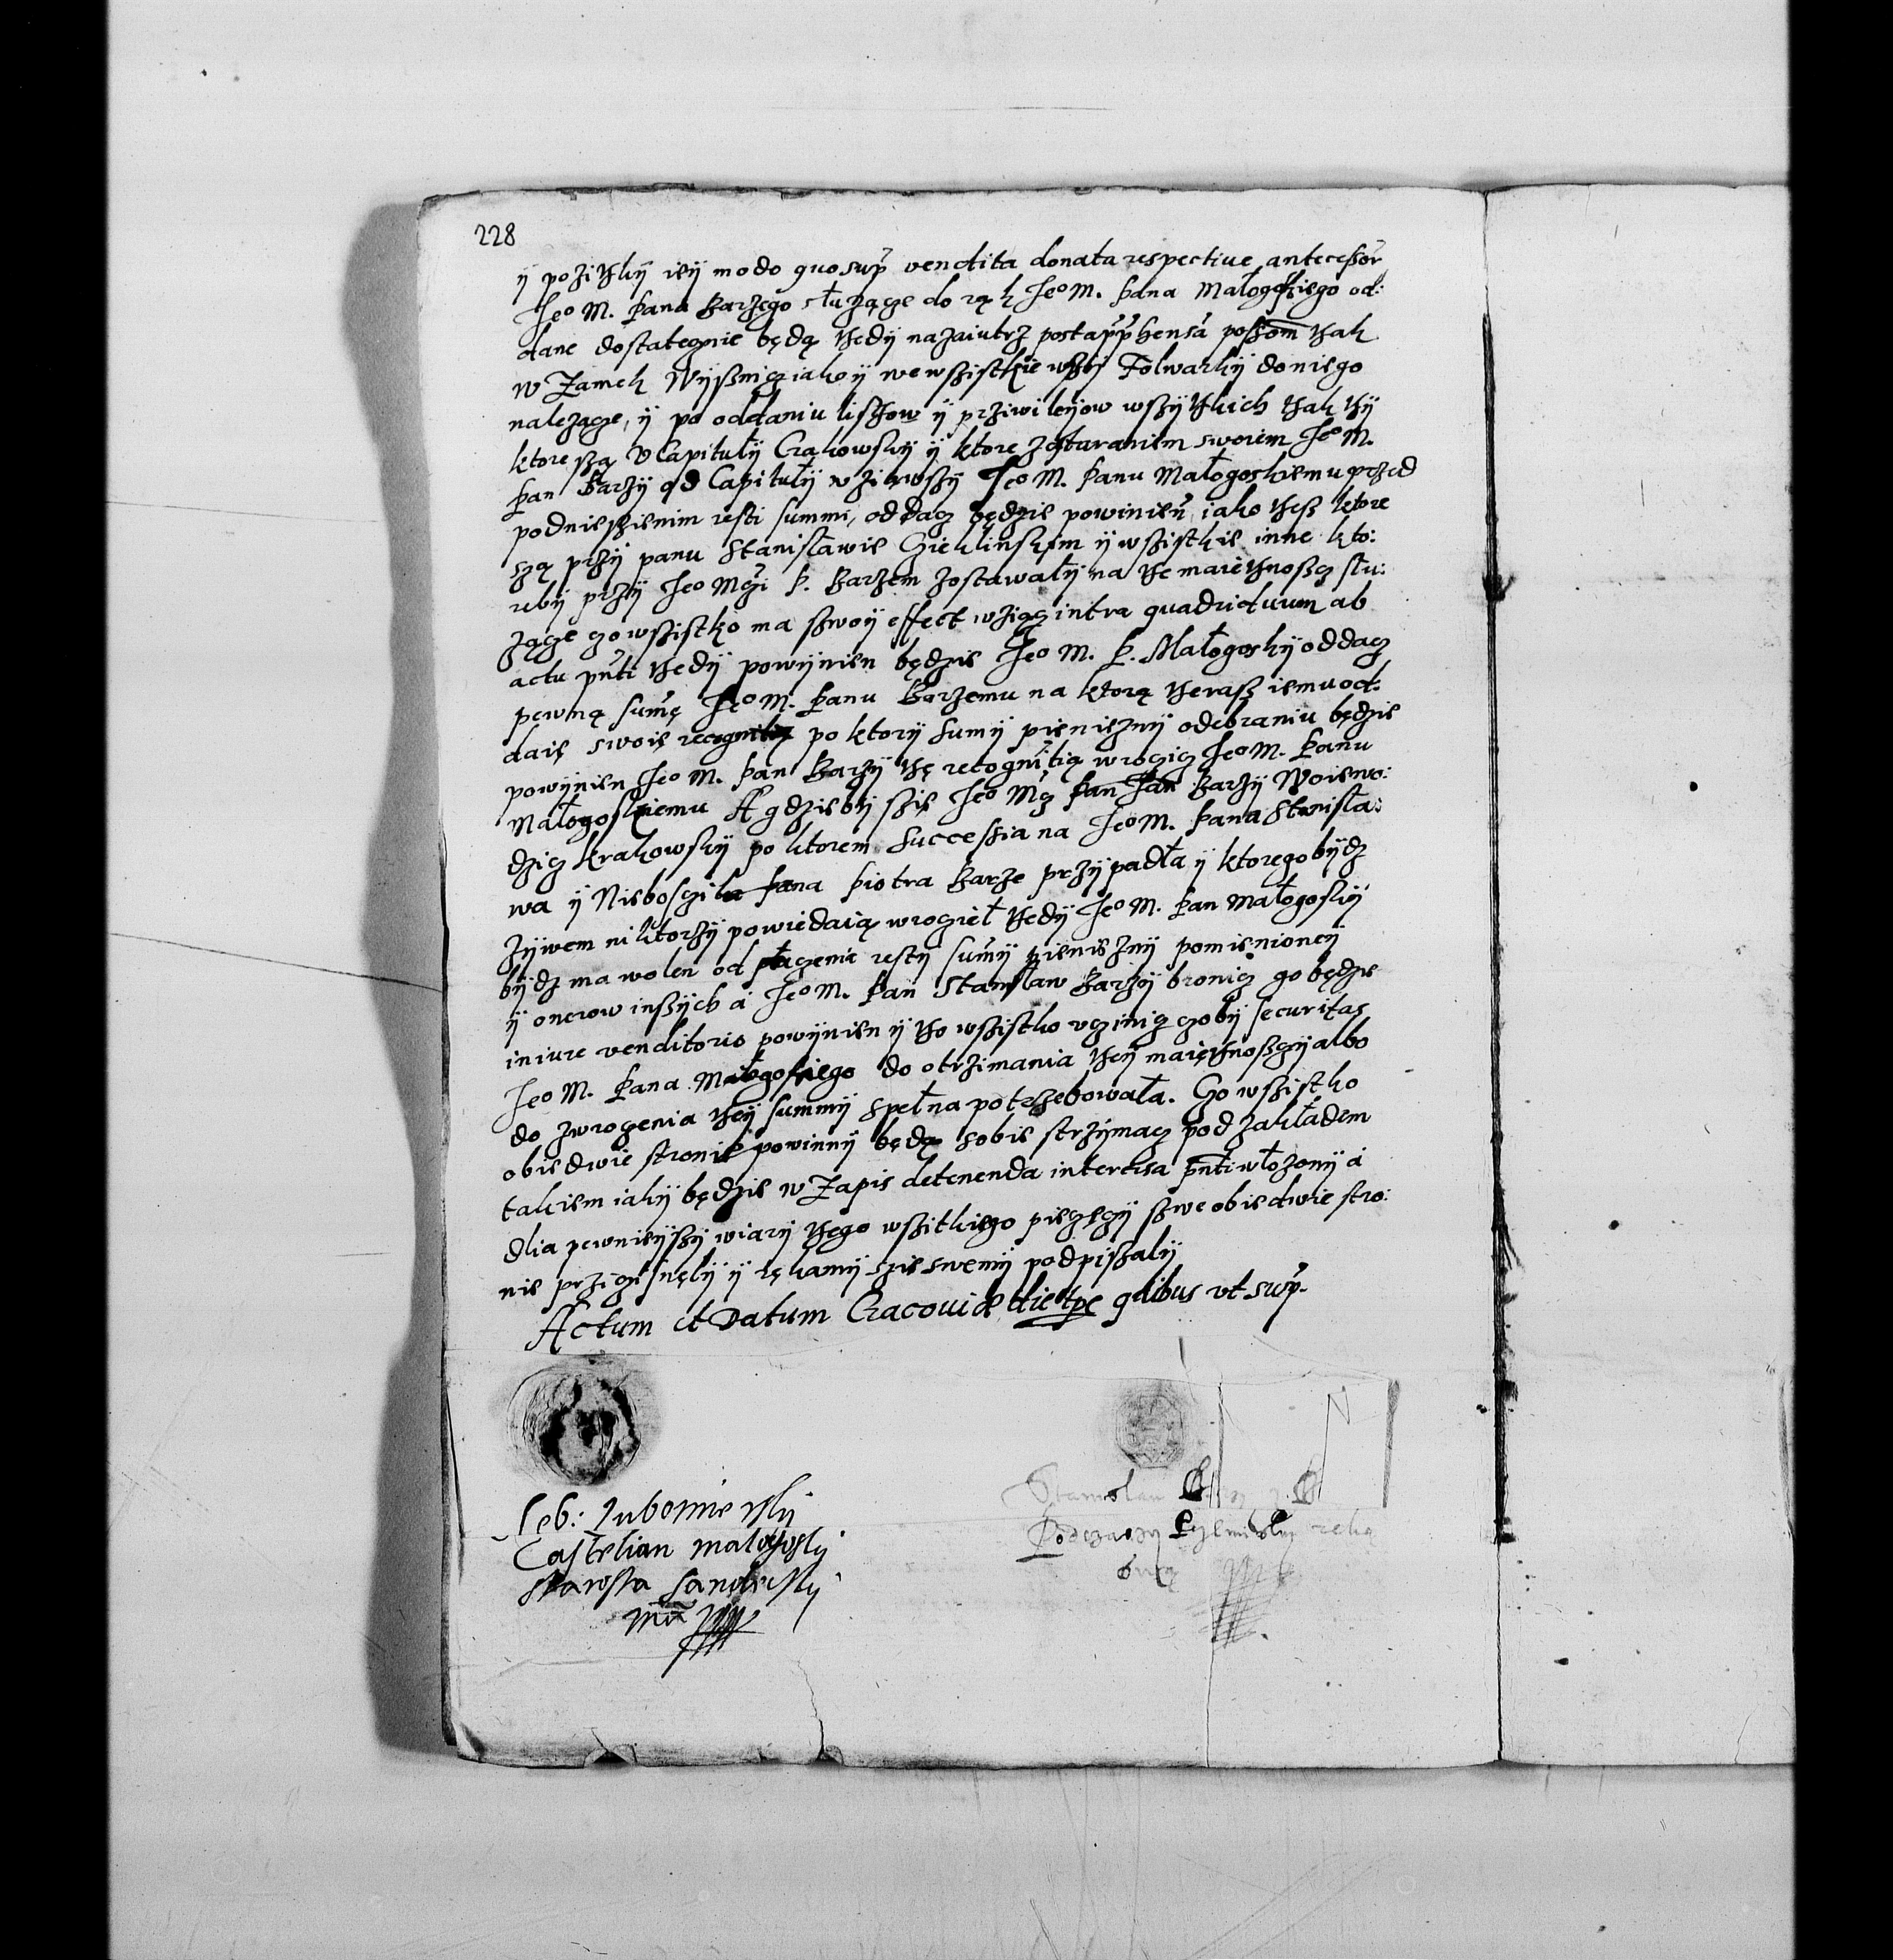 228
ÿ pozithkÿ ieÿ modo quo sup̃ vendita donata respectiue antecessor̃
Jeº M. Pana Barzego słuzącze do rąk Jeº M. Pana Małogoskiego od:
dane dostatecznie będą thedÿ nazaiutrz post app̃hensã posʃiom̃ thak
w Zamek Wÿsznicz iako ÿ we wszistkie wszÿ Folwarkÿ do niego
nalezącze, ÿ po oddaniu listhow ÿ przÿwileÿow wszÿthkich thak thÿ
ktore szą v Capitułÿ Crakowskÿ ÿ ktore za staraniem swoiem Jeº M.
Pan Barzÿ od Capitułÿ wziąwszÿ Jeº M. Panu Małogoskiemu przed
podniesieniem resti summi, oddacz będzie powinień iako thesz ktore
szą przÿ panu Stanisławie Czieklinskim ÿ wszistkie inne kto:
rebÿ przÿ Jeº Mczi P. Barzem zostawałÿ na the maiethnoscz słu:
zącze czo wszistko ma szwoÿ effect wziącz intra quadriduum ab
actu pñti thedÿ powÿnien będzie Jeº M. P. Małogoskÿ oddacz
pewną sum̃ę Jeº M. Panu Barzemu na ktorą therasz iemu od:
daię swoię recognitią po ktorÿ sumÿ pienieznÿ odebraniu będzie
powÿnien Jeº M. Pan Barzÿ thę recognitią wroczicz Jeº M. Panu
Małogoskiemu A gdzie bÿ szie Jeº Mcz Pan Jan Barzÿ Woiewo:
dzicz krakowskÿ po ktorem successia na Jeº M. Pana Stanisła:
wa ÿ Nieboszcz Pana Piotra Barze przÿpadła ÿ ktorego bÿdz
zÿwem niktorzÿ powiedaią wrocziel thedÿ Jeº M. Pan Małogoskÿ
bÿdz ma wolen od płaczenie restÿ sum̃ÿ pienieznÿ pomienioneÿ
ÿ onerow inszÿch á Jeº M. Pan Stanisław Barzÿ bronicz go będzie
in iure venditorio powÿnien ÿ tho wszistko vczinicz czobÿ securitas
Jeº M. Pana Małogoskiego do otrzimania theÿ maięthnosczÿ albo
do zwroczenia theÿ summÿ spełna potrzebowała. Czo wszistko
obiedwie stronie powinnÿ będą sobie strzÿmacz pod zakładem
takiem iakÿ będzie w Zapis detenenda intercisa pñti włozonÿ á
dlia pewnieÿszÿ wiarÿ thego wszitkiego pieczęczÿ szwe obiedwie stro:
nie przicisnęlÿ ÿ rękamÿ szie swemÿ podpiszalÿ
Actum et Datum Cracouiæ die tpe qdibus vt sup̃.
Seb: Lubomirskÿ
Castelian malogoskÿ
Starosta sandeckÿ
mp
Stanislaw
Podczaszy ręką
swą